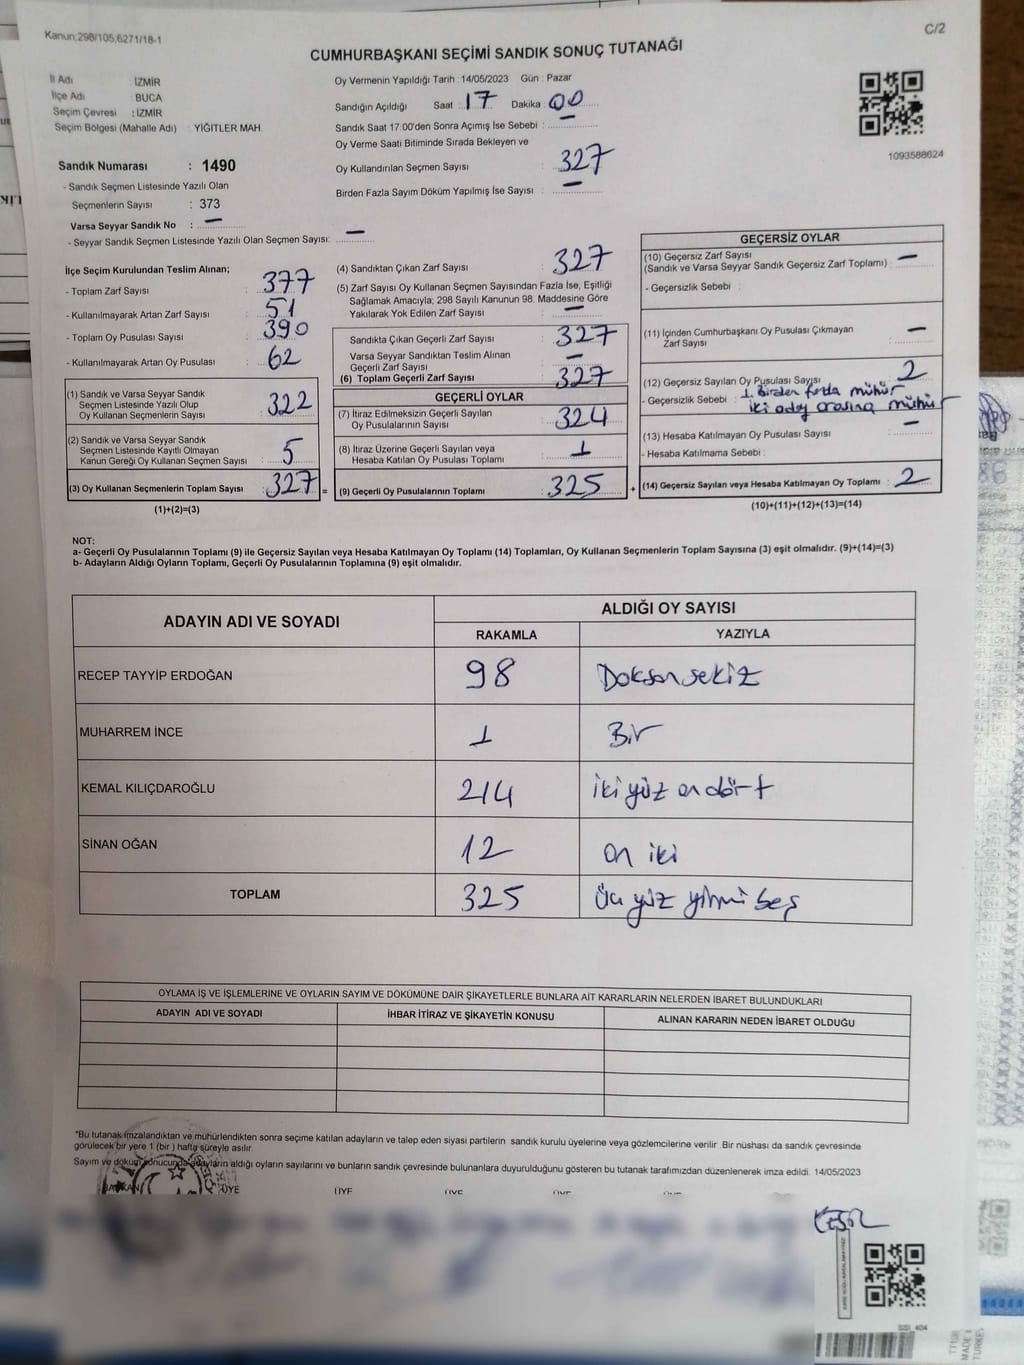 Kanun:298/105,6271/18-1
C/2
CUMHURBAŞKANI SEÇİMİ SANDIK SONUÇ TUTANAĞI
İl Adı : İZMİR
İlçe Adı : BUCA
Seçim Çevresi : İZMİR
Seçim Bölgesi (Mahalle Adı) : YİĞİTLER MAH.
Sandık Numarası : 1490
- Sandık Seçmen Listesinde Yazılı Olan
Seçmenlerin Sayısı : 373
Varsa Seyyar Sandık No : —
- Seyyar Sandık Seçmen Listesinde Yazılı Olan Seçmen Sayısı: —
Oy Vermenin Yapıldığı Tarih : 14/05/2023 Gün : Pazar
Sandığın Açıldığı Saat : 17 Dakika : 00
Sandık Saat 17:00'den Sonra Açımış İse Sebebi : —
Oy Verme Saati Bitiminde Sırada Bekleyen ve
Oy Kullandırılan Seçmen Sayısı : 327
Birden Fazla Sayım Döküm Yapılmış İse Sayısı : —
1093588624
İlçe Seçim Kurulundan Teslim Alınan;
- Toplam Zarf Sayısı : 377
- Kullanılmayarak Artan Zarf Sayısı : 51
- Toplam Oy Pusulası Sayısı : 390
- Kullanılmayarak Artan Oy Pusulası : 62
(1) Sandık ve Varsa Seyyar Sandık
Seçmen Listesinde Yazılı Olup
Oy Kullanan Seçmenlerin Sayısı : 322
(2) Sandık ve Varsa Seyyar Sandık
Seçmen Listesinde Kayıtlı Olmayan
Kanun Gereği Oy Kullanan Seçmen Sayısı : 5
(3) Oy Kullanan Seçmenlerin Toplam Sayısı : 327 =
(1)+(2)=(3)
(4) Sandıktan Çıkan Zarf Sayısı : 327
(5) Zarf Sayısı Oy Kullanan Seçmen Sayısından Fazla İse, Eşitliği
Sağlamak Amacıyla; 298 Sayılı Kanunun 98. Maddesine Göre
Yakılarak Yok Edilen Zarf Sayısı : —
Sandıkta Çıkan Geçerli Zarf Sayısı : 327
Varsa Seyyar Sandıktan Teslim Alınan
Geçerli Zarf Sayısı : —
(6) Toplam Geçerli Zarf Sayısı : 327
GEÇERLİ OYLAR
(7) İtiraz Edilmeksizin Geçerli Sayılan
Oy Pusulalarının Sayısı : 324
(8) İtiraz Üzerine Geçerli Sayılan veya
Hesaba Katılan Oy Pusulası Toplamı : 1
(9) Geçerli Oy Pusulalarının Toplamı : 325 +
GEÇERSİZ OYLAR
(10) Geçersiz Zarf Sayısı
(Sandık ve Varsa Seyyar Sandık Geçersiz Zarf Toplamı) : —
- Geçersizlik Sebebi :
(11) İçinden Cumhurbaşkanı Oy Pusulası Çıkmayan
Zarf Sayısı : —
(12) Geçersiz Sayılan Oy Pusulası Sayısı : 2
- Geçersizlik Sebebi : 1. Birden fazla mühür
iki aday arasına mühür
(13) Hesaba Katılmayan Oy Pusulası Sayısı : —
- Hesaba Katılmama Sebebi :
(14) Geçersiz Sayılan veya Hesaba Katılmayan Oy Toplamı : 2
(10)+(11)+(12)+(13)=(14)
NOT:
a- Geçerli Oy Pusulalarının Toplamı (9) ile Geçersiz Sayılan veya Hesaba Katılmayan Oy Toplamı (14) Toplamları, Oy Kullanan Seçmenlerin Toplam Sayısına (3) eşit olmalıdır. (9)+(14)=(3)
b- Adayların Aldığı Oyların Toplamı, Geçerli Oy Pusulalarının Toplamına (9) eşit olmalıdır.
ADAYIN ADI VE SOYADI
ALDIĞI OY SAYISI
RAKAMLA YAZIYLA
RECEP TAYYİP ERDOĞAN 98 Doksansekiz
MUHARREM İNCE 1 Bir
KEMAL KILIÇDAROĞLU 214 iki yüz on dört
SİNAN OĞAN 12 on iki
TOPLAM 325 üç yüz yirmi beş
OYLAMA İŞ VE İŞLEMLERİNE VE OYLARIN SAYIM VE DÖKÜMÜNE DAİR ŞİKAYETLERLE BUNLARA AİT KARARLARIN NELERDEN İBARET BULUNDUKLARI
ADAYIN ADI VE SOYADI İHBAR İTİRAZ VE ŞİKAYETİN KONUSU ALINAN KARARIN NEDEN İBARET OLDUĞU
"Bu tutanak imzalandıktan ve mühürlendikten sonra seçime katılan adayların ve talep eden siyasi partilerin sandık kurulu üyelerine veya gözlemcilerine verilir. Bir nüshası da sandık çevresinde
görülecek bir yere 1 (bir ) hafta süreyle asılır.
Sayım ve döküm sonucunda adayların aldığı oyların sayılarını ve bunların sandık çevresinde bulunanlara duyurulduğunu gösteren bu tutanak tarafımızdan düzenlenerek imza edildi. 14/05/2023
BAŞKAN ÜYE ÜYE ÜYE ÜYE ÜYE
SSI_404